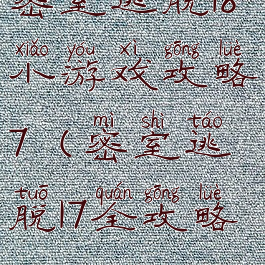 密室逃脱18
xiǎo yóu xì gōng lüè
小游戏攻略
mì shì táo
7（密室逃
tuō quán gōng lüè
脱17全攻略